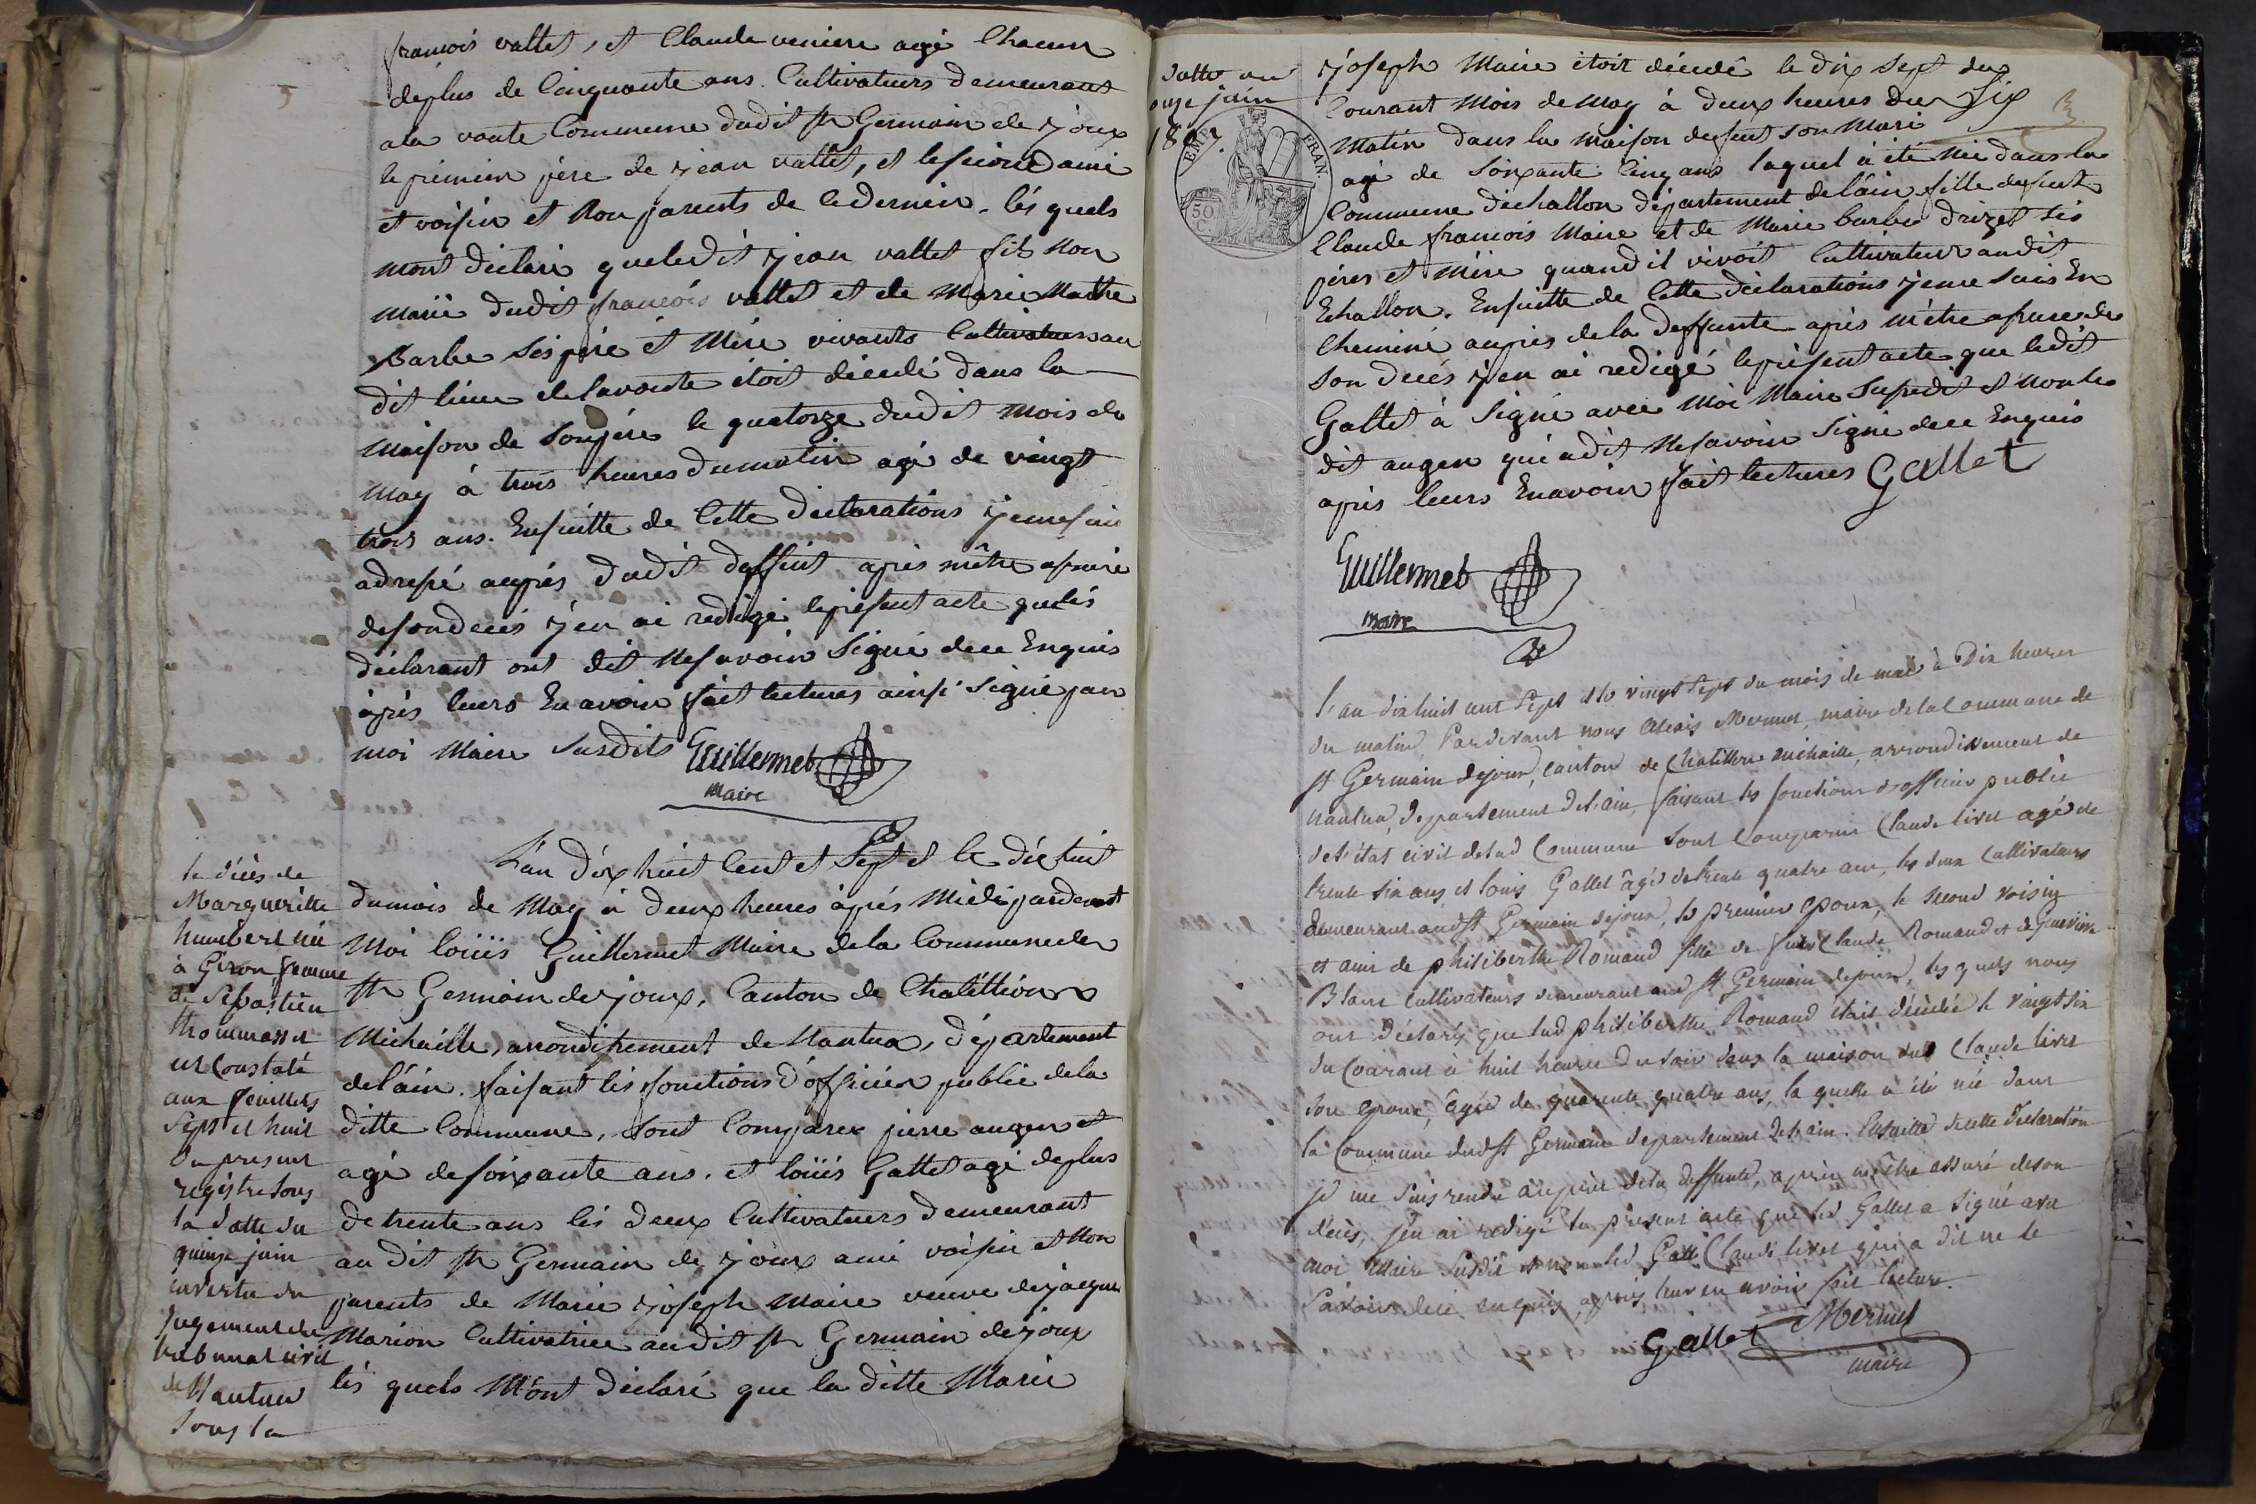 françois vallet, et Claude veniere agé Chacun
deplus de Cinquante ans. Cultivateurs demeurant
ala voute Commune dudit st Germain de joux
le premier père de jean vallet, et le second ami
et voisin et Non parents de ce dernier. lés quels
mont déclaré queledit jean vallet fils Non
marié dudit françois vallet et de Marie Mathe
Barbe sés père et Mère vivants Cultivateurs au
dit lieu de lavoute étoit décédé dans la
Maison de sonpère le quatorze dudit Mois de
May à trois heures dumatin agé de vingt
trois ans. Ensuitte de Cette déclarations jemesuis
adressé auprés dudit deffunt aprés mêtre assuré
desondecés j'en ai redigé leprésent acte quelés
déclarant ont dit Nesavoir Signé dece Enquis
aprés leurs En avoir fait lectures ainsi Signé par
moi Maire susdits Guillermet
maire
L'an dix huit Cent et Sept et le dix huit
dumois de May à deux heures aprés Midi pardevant
Moi loüis Guillermet Maire dela Commune de
st Germain de joux, Canton de Chatillion
Michaille, arrondissement de Nantua, département
delain. faisant lés fonctions d'officier public dela
ditte Commune, sont Comparex pierre augen et
agé desoixante ans. et loüis Gallet agé deplus
de trente ans lés deux Cultivateurs demeurant
au dit st Germain de joux ami voisin et Non
parents de Marie joseph Maire veuve dejaque
Marion Cultivatrice audit st Germain dejoux
lés quels M'ont déclaré que la ditte Marie
le décès de
Margueritte
humbert née
à Giron femme
de Sébastien
Thommasset
est Constaté
aux feuillets
Sept et huit
du present
registre sous
la datte du
quinze juin
en vertu du
Jugement du
tribunal civil
de Nantua
sous la
datte du
onze juin
1807.
EMP. FRAN.
50 C.
joseph Maire étoit décédé le dix sept du
Courant Mois de May à deux heures du Six
Matin dans la Maison defeut son Mari
agé de soixante Cinq ans laquel à été Née dans la
Commune déchallon département delain fille defeut
Claude françois Maire et de Marie barbe drizet sés
pères et Mère quand il vivoit Cultivateur audit
Echallon. Ensuitte de Cette déclarations jeme suis En
Cheminé aupres dela deffunte aprés mêtre assuré de
son decés j'en ai redigé leprésent acte que ledit
Gallet à Signé avec Moi Maire Susdit et Non le
dit augen qui adit Nesavoir Signé dece Enquis
aprés leurs Enavoir fait lectures Gallet
Guillermet
maire
L'an dixhuit cent Sept et le vingt Sept du mois de mai à Dix heures
du matin, Pardevant nous Alexis Mermet, maire de la Commune de
st Germain dejoux, canton de Chatillon michaille, arrondissement de
nantua, département del'ain, faisant les fonctions d'officier public
del'état civil delad Commune sont Comparus Claude livet agé de
trente six ans et louis Gallet âgé de trente quatre ans, les deux Cultivateurs
demeurant audt St Germain dejoux, le premier époux, le second voisin
et ami de philiberthe Romand fille de feux Claude Romand et de Genevieve
Blanc Cultivateurs demeurant aud st Germain dejoux, les quels nous
ont déclarés que lad philiberthe Romand était décédée le vingt six
du Courant à huit heures du soir dans la maison dud Claude livet
son époux, âgée de quarente quatre ans, la quelle a été née dans
la Commune dudt Germain département del'ain. Ensuitte de cette déclaration
je me suis rendu auprès dela deffunte, après m'être assuré deson
décès, j'en ai redigé le présent acte que led Gallet a Signé avec
moi maire Susdit et non led Claude livet qui a dit ne le
savoir dece enquis, après leur en avoir fait lecture.
Gallet Mermet
maire